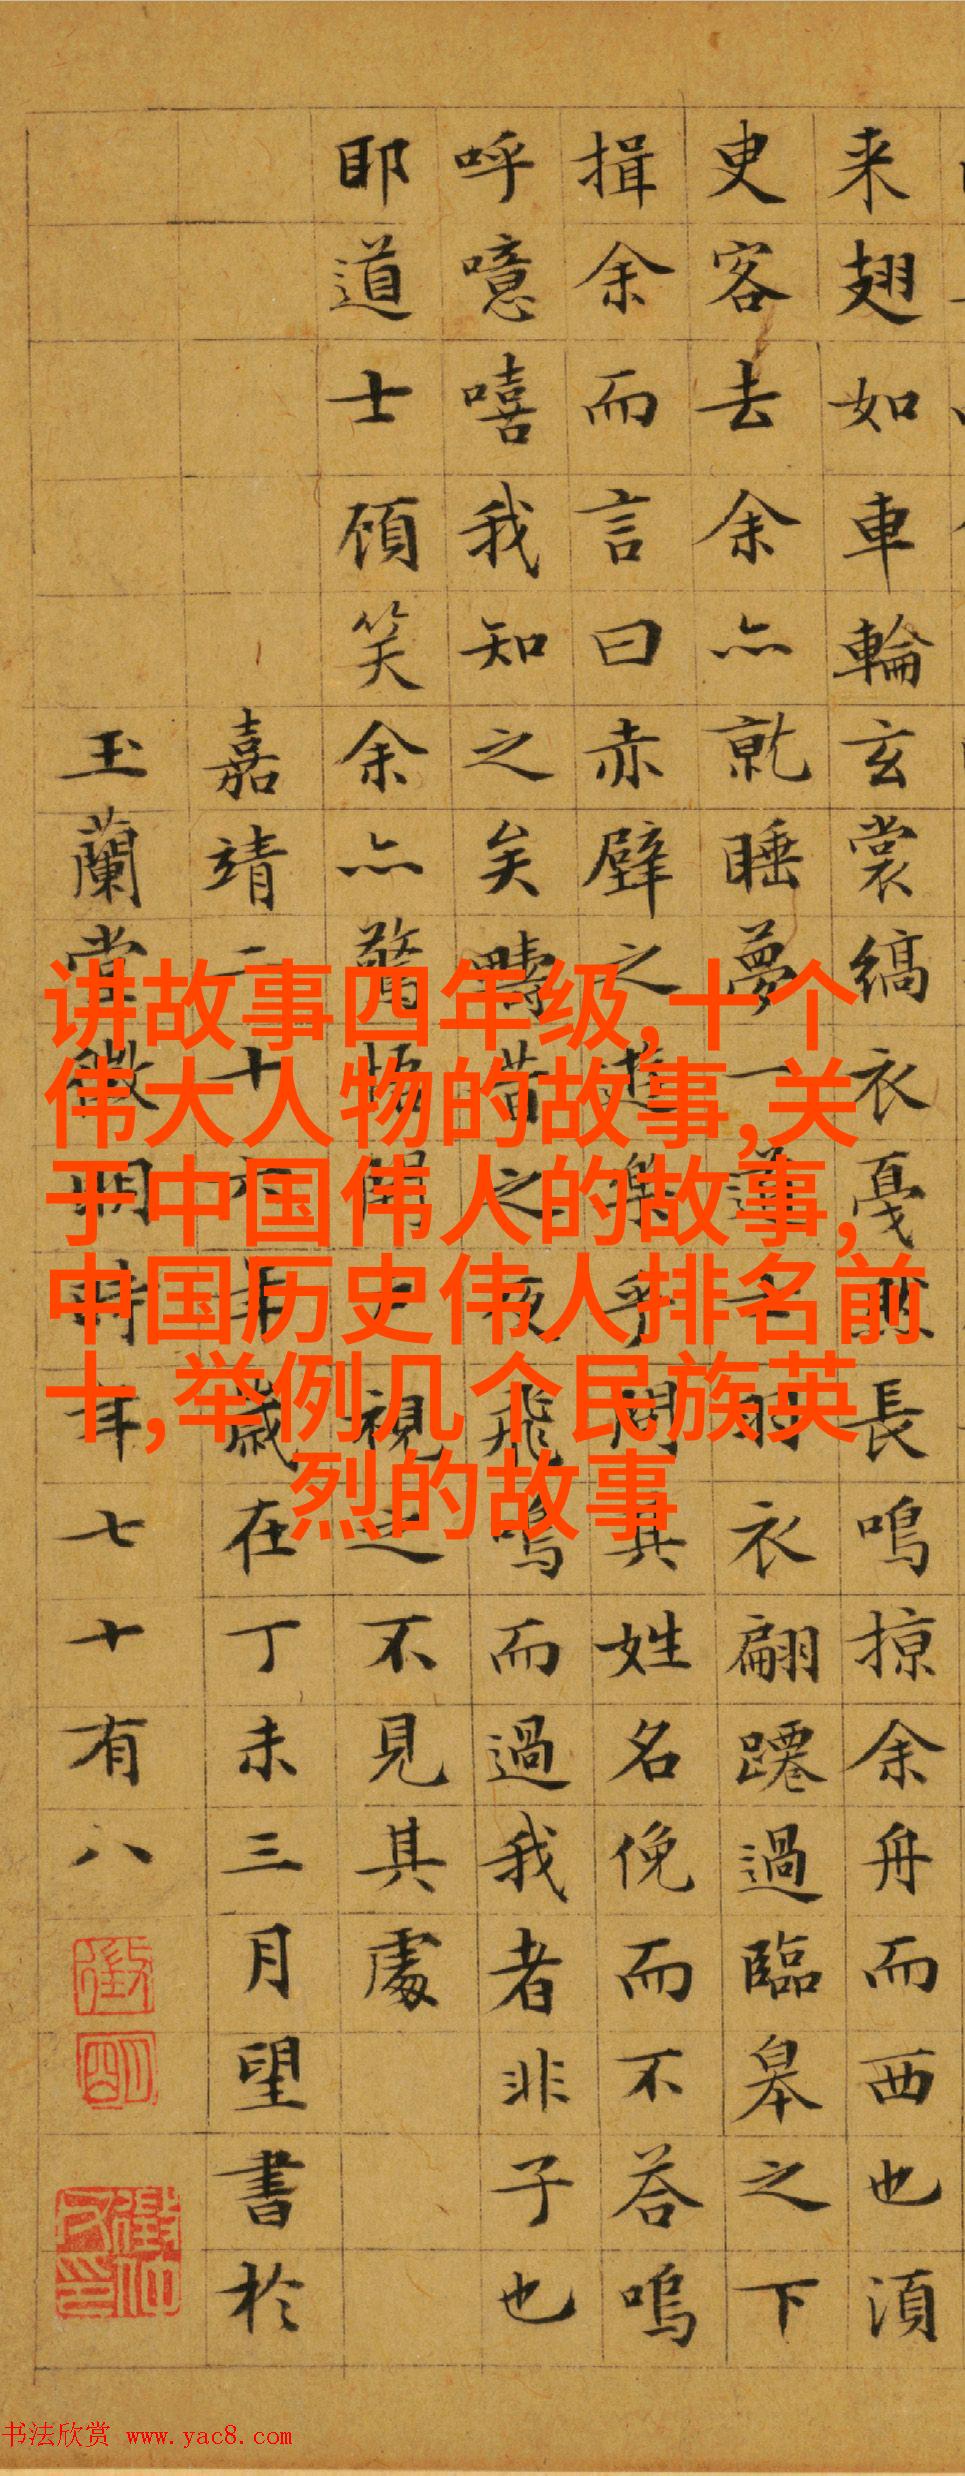 来翅如車輪玄裳縞衣戛然長鳴掠余舟而西也須
臾客去余亦就睡夢一道士羽衣翩躚過臨皋之下
揖余而言曰赤壁之遊樂乎問其姓名俛而不荅嗚
呼噫嘻我知之矣疇昔之夜飛鳴而過我者非子也
耶道士頋笑余亦驚悟開戶視之不見其處
嘉靖二十六年歲在丁未三月望書於
玉蘭堂徵明時年七十有八
徵
明
讲故事四年级,十个
伟大人物的故事,关
于中国伟人的故事,
中国历史伟人排名前
十,举例几个民族英
烈的故事
书法欣赏 www.yac8.com